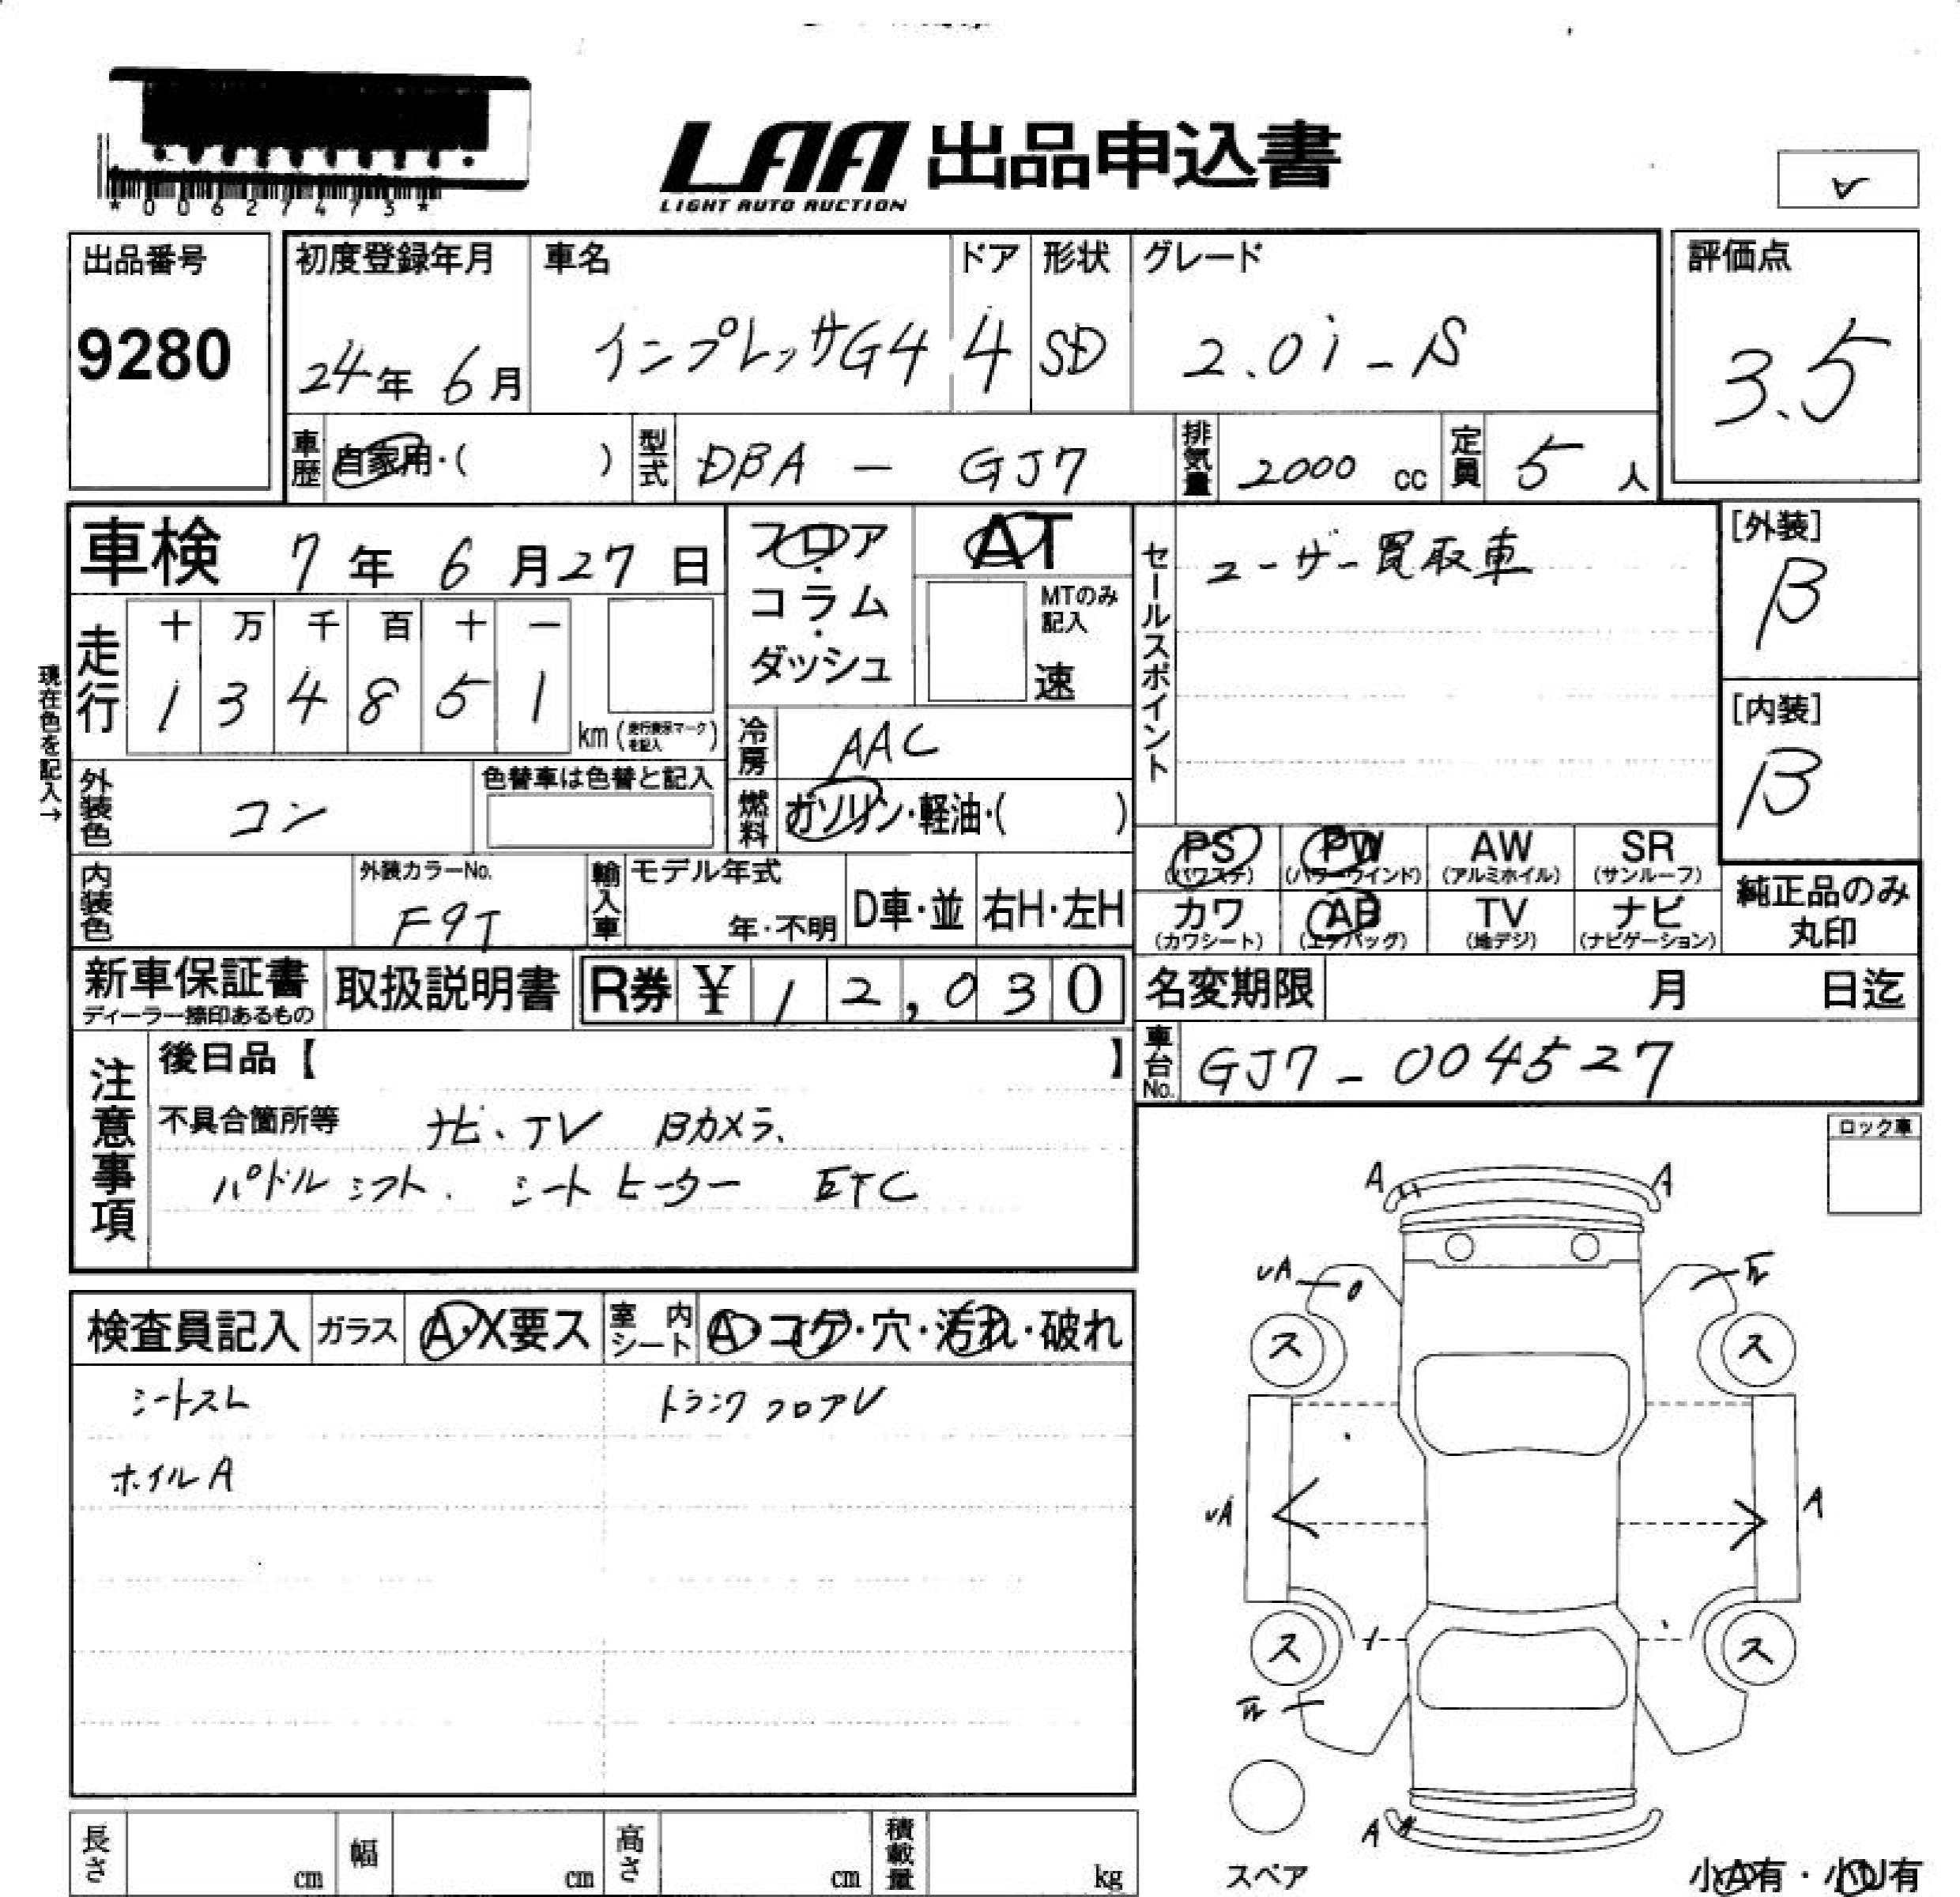 *00627475*
LAA 出品申込書
LIGHT AUTO AUCTION
出品番号
9280
初度登録年月
24年 6月
車名
インプレッサG4
ドア
4
形状
SD
グレード
2.0i-S
評価点
3.5
車歴 自家用・( )
型式 DBA - GJ7
排気量 2000 cc
定員 5 人
車検 7年 6月27日
走行
十 万 千 百 十 一
1 3 4 8 5 1
km(走行表示マークを記入)
現在色を記入→
外装色 コン
色替車は色替と記入
内装色
外装カラーNo.
F9T
輸入車
モデル年式
年・不明
D車・並
右H・左H
フロア・コラム・ダッシュ
AT
MTのみ記入
速
冷房 AAC
燃料 ガソリン・軽油・( )
セールスポイント
ユーザー買取車
[外装]
B
[内装]
B
PS (パワステ)
PW (パワーウインド)
AW (アルミホイル)
SR (サンルーフ)
カワ (カワシート)
AB (エアバッグ)
TV (地デジ)
ナビ (ナビゲーション)
純正品のみ丸印
新車保証書
ディーラー捺印あるもの
取扱説明書
R券 ¥12,030
名変期限 月 日迄
車台No. GJ7-004527
注意事項
後日品【 】
不具合箇所等 ナビ、TV Bカメラ、
パドルシフト、シートヒーター ETC
ロック車
検査員記入
ガラス A・X要ス
室内シート A・コゲ・穴・汚れ・破れ
シートスレ
トランクフロアU
ホイルA
A A
UA
ス ス
UA A
ス ス
A
スペア
小A有・小U有
長さ cm
幅 cm
高さ cm
積載量 kg